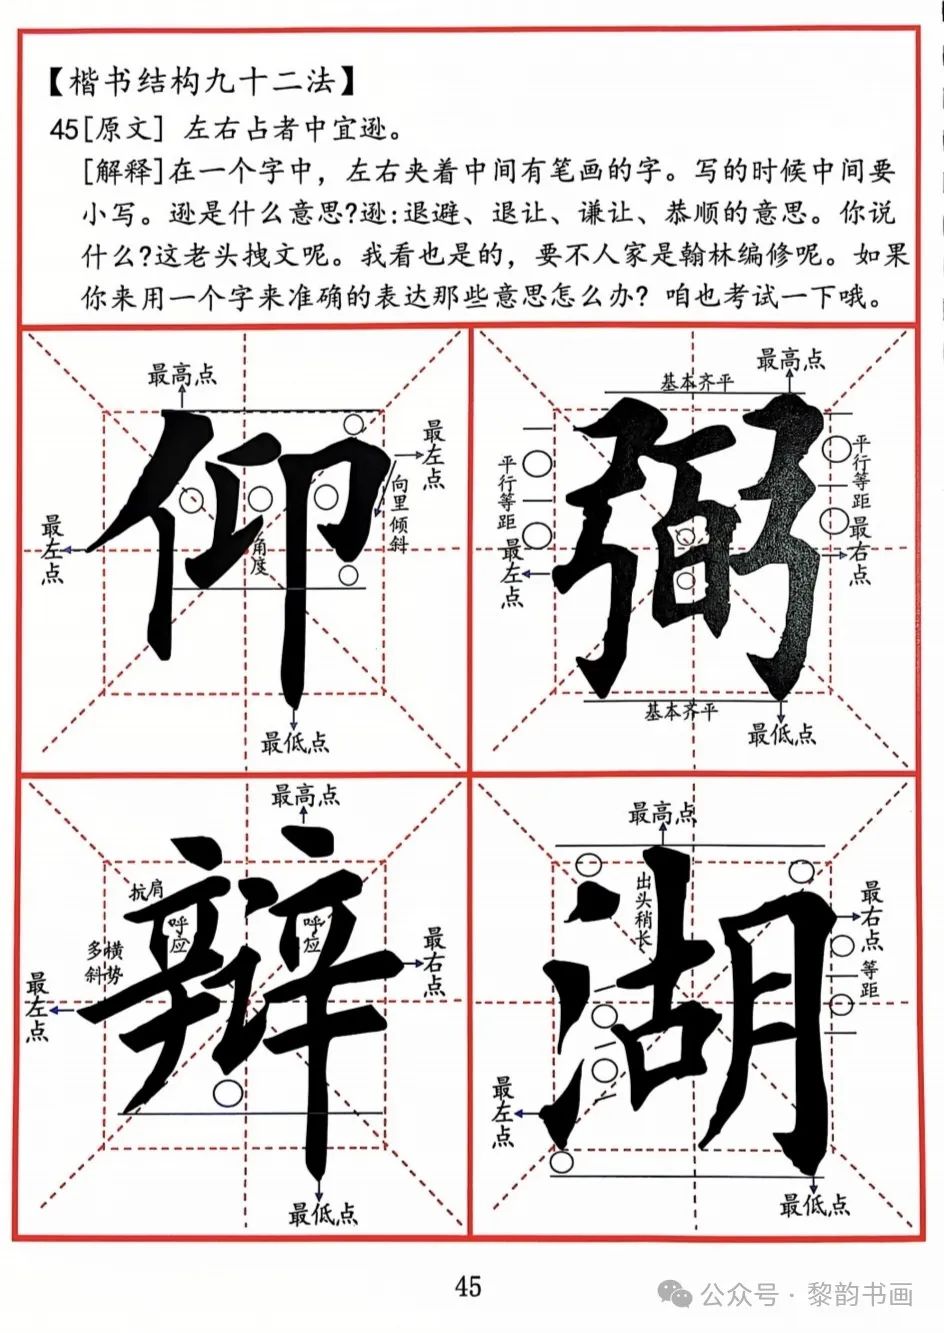 【楷书结构九十二法】
45[原文] 左右占者中宜逊。
[解释]在一个字中，左右夹着中间有笔画的字。写的时候中间要
小写。逊是什么意思?逊:退避、退让、谦让、恭顺的意思。你说
什么?这老头拽文呢。我看也是的，要不人家是翰林编修呢。如果
你来用一个字来准确的表达那些意思怎么办? 咱也考试一下哦。
最高点
最左点
向里倾斜
最左点
角度
仰
最低点
最高点
基本齐平
平行等距
平行等距
最左点
最右点
弼
基本齐平
最低点
最高点
抗肩
呼应
呼应
多横斜势
最左点
最右点
辩
最低点
最高点
出头稍长
最右点
等距
最左点
湖
最低点
45
公众号·黎韵书画